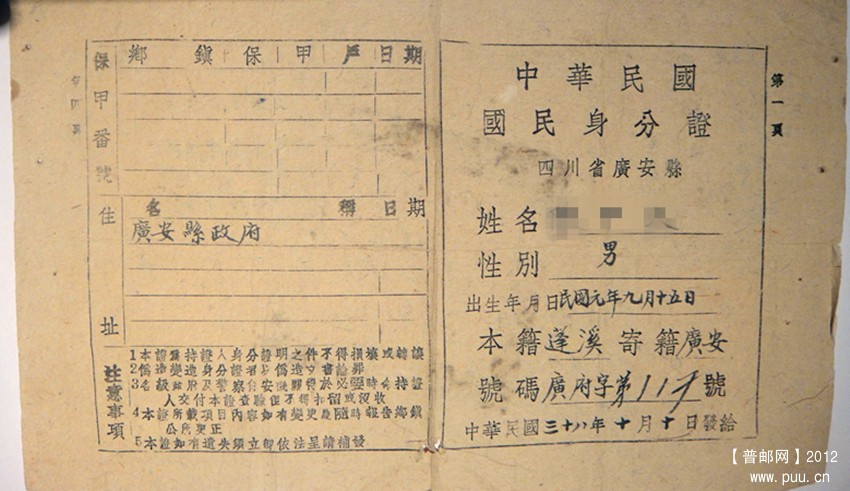 第一頁
中華民國
國民身分證
四川省廣安縣
姓名
性別 男
出生年月日民國元年九月十五日
本籍蓬溪寄籍廣安
號碼廣府字第 號
中華民國三十八年十月十日發給
第四頁
保甲番號
鄉 鎮 保 甲 戶 日期
住址
名 稱 日期
廣安縣政府
注意事項
1本證為持證人身分證明之件不得損壞或轉讓
2偽造 身分證者以偽造文書論罪
3各級政府及警察自安機 得於必要時令持證
人交付本證查驗但不得扣留或沒收
4本證所載項目內容如有變更應隨時報告鄉鎮
公所更正
5本證如有遺失須立即依法呈請補發
【普邮网】2012
www.puu.cn